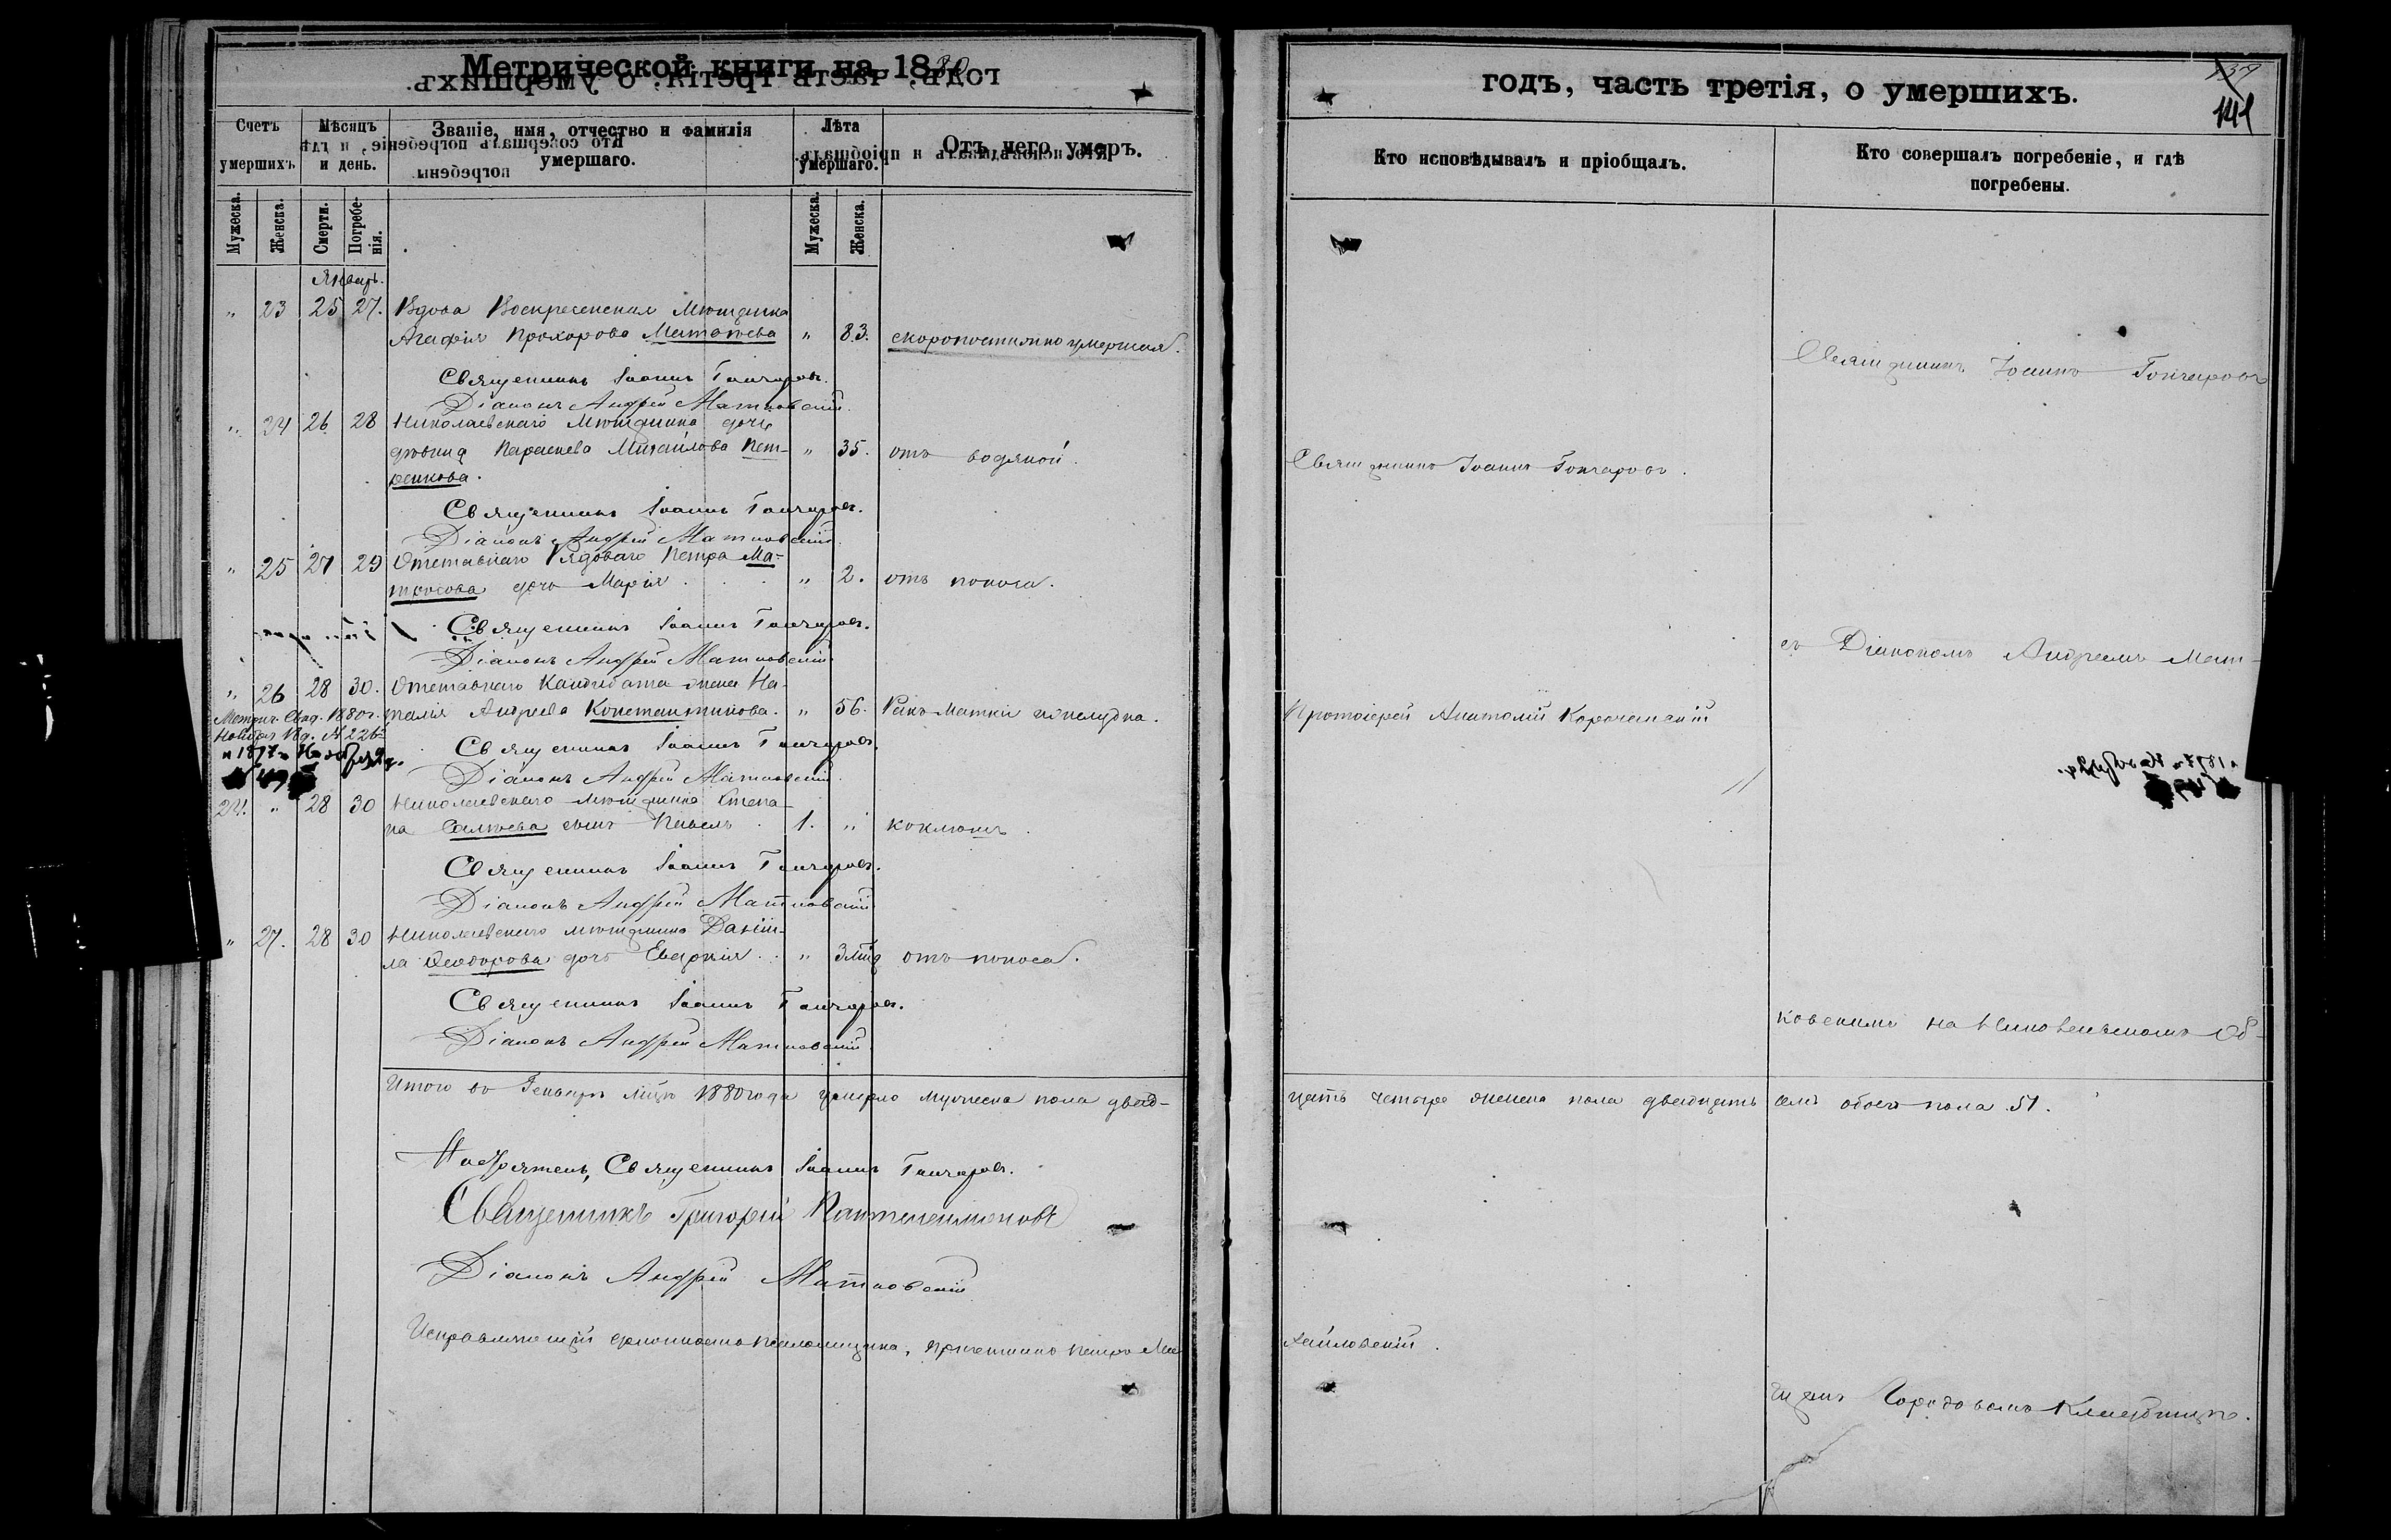 Метрической книги на 1880
Счетъ умершихъ.
Мѣсяцъ и день.
Званіе, имя, отчество и фамилія умершаго.
Лѣта умершаго.
Отъ чего умеръ.
Мужеска.
Женска.
Смерти.
Погребенія.
Мужеска.
Женска.
Январь.
" 23 25 27. Вдова Воскресенская Мѣщанка
Агафія Прохорова Матвѣева " 83. скоропостижно умершая.
Священникъ Іоаннъ Гончаровъ.
Діаконъ Андрей Матковскій.
" 24 26 28 Николаевскаго Мѣщанина дочь
дѣвица Параскева Михайлова Пет- " 35. отъ водяной.
ренкова.
Священникъ Іоаннъ Гончаровъ.
Діаконъ Андрей Матковскій.
" 25 27 29 Отставнаго Рядоваго Петра Ма-
дочь Марія " 2. отъ поноса.
Священникъ Іоаннъ Гончаровъ.
Діаконъ Андрей Матковскій
" 26 28 30. Отставнаго Кандидата жена На-
талія Андреева Константинова. " 56. Ракъ матки и желудка.
Метрич. Свид. 1880 г.
Ноября 18д. № 226
и 1897 г. Ноября 9 д.
Священникъ Іоаннъ Гончаровъ.
Діаконъ Андрей Матковскій.
24. " 28 30 Николаевскаго мѣщанина Степа-
на сынъ Павелъ 1. " коклюшъ.
Священникъ Іоаннъ Гончаровъ.
Діаконъ Андрей Матковскій
" 27. 28 30 Николаевскаго мѣщанина Даніи-
ла Ѳеодорова дочь Евдокія " 3 мѣс отъ поноса.
Священникъ Іоаннъ Гончаровъ.
Діаконъ Андрей Матковскій.
Итого въ Генварѣ мѣцѣ 1880 года умерло мужеска пола двад-
Священникъ Іоаннъ Гончаровъ.
Священникъ Григорій Пантелеимоновъ
Діаконъ Андрей Матковскій
Исправляющій должность псаломщика, причетникъ Петръ Ми
годъ, часть третія, о умершихъ.
139
141
Кто исповѣдывалъ и пріобщалъ.
Кто совершалъ погребеніе, и гдѣ погребены.
Священникъ Іоаннъ Гончаровъ
Священникъ Іоаннъ Гончаровъ.
съ Діакономъ Андреемъ Мат-
Протоіерей Анатолій Корочанскій
ковскимъ на Николаевскомъ Об-
цать четыре женска пола двадцать семь обоего пола 51.
хайловскій.
щемъ Городовомъ Кладбищѣ.